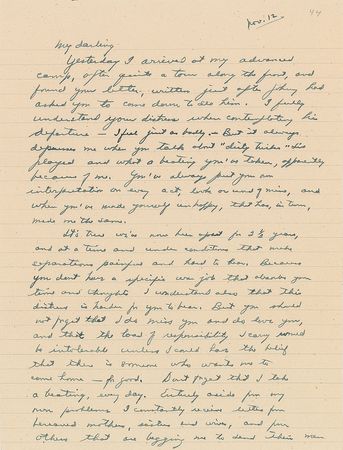 Nov. 12
44
My darling
Yesterday I arrived at my advanced
camp, after quite a tour along the front, and
found your letter, written just after Johnny had
asked you to come down to see him. I fully
understand your distress when contemplating his
departure — I feel just as badly. But it always
depresses me when you talk about "dirty tricks" I've
played and what a beating you've taken, apparently
because of me. You've always put your own
interpretation on every act, look or word of mine, and
when you've made yourself unhappy, that has, in turn,
made me the same.
It's true we've now been apart for 2½ years,
and at a time and under conditions that make
separations painful and hard to bear. Because
you don't have a specific war job that absorbs your
time and thoughts I understand also that this
distress is harder for you to bear. But you should
not forget that I do miss you and do love you,
and that the load of responsibility I carry would
be intolerable unless I could have the belief
that there is someone who wants me to
come home — for good. Don't forget that I take
a beating, every day. Entirely aside from my
own problems I constantly receive letters from
bereaved mothers, sisters and wives, and from
others that are begging me to send their men